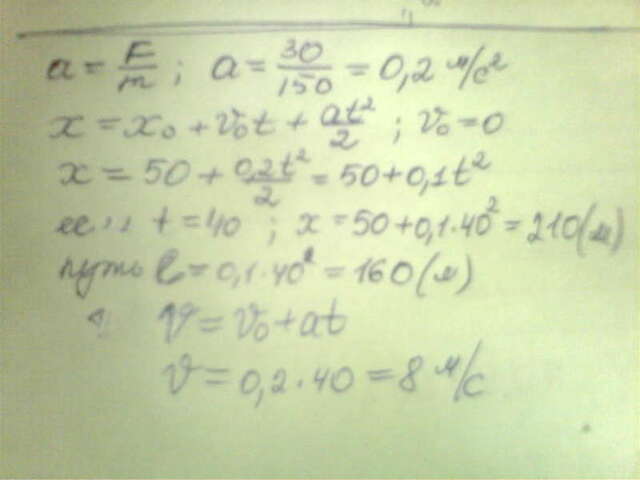 a = F/m ; a = 30/150 = 0,2 м/с²
x = x₀ + v₀t + at²/2 ; v₀ = 0
x = 50 + 0,2t²/2 = 50 + 0,1t²
если t = 40 ; x = 50 + 0,1·40² = 210 (м)
путь l = 0,1·40² = 160 (м)
v = v₀ + at
v = 0,2·40 = 8 м/с